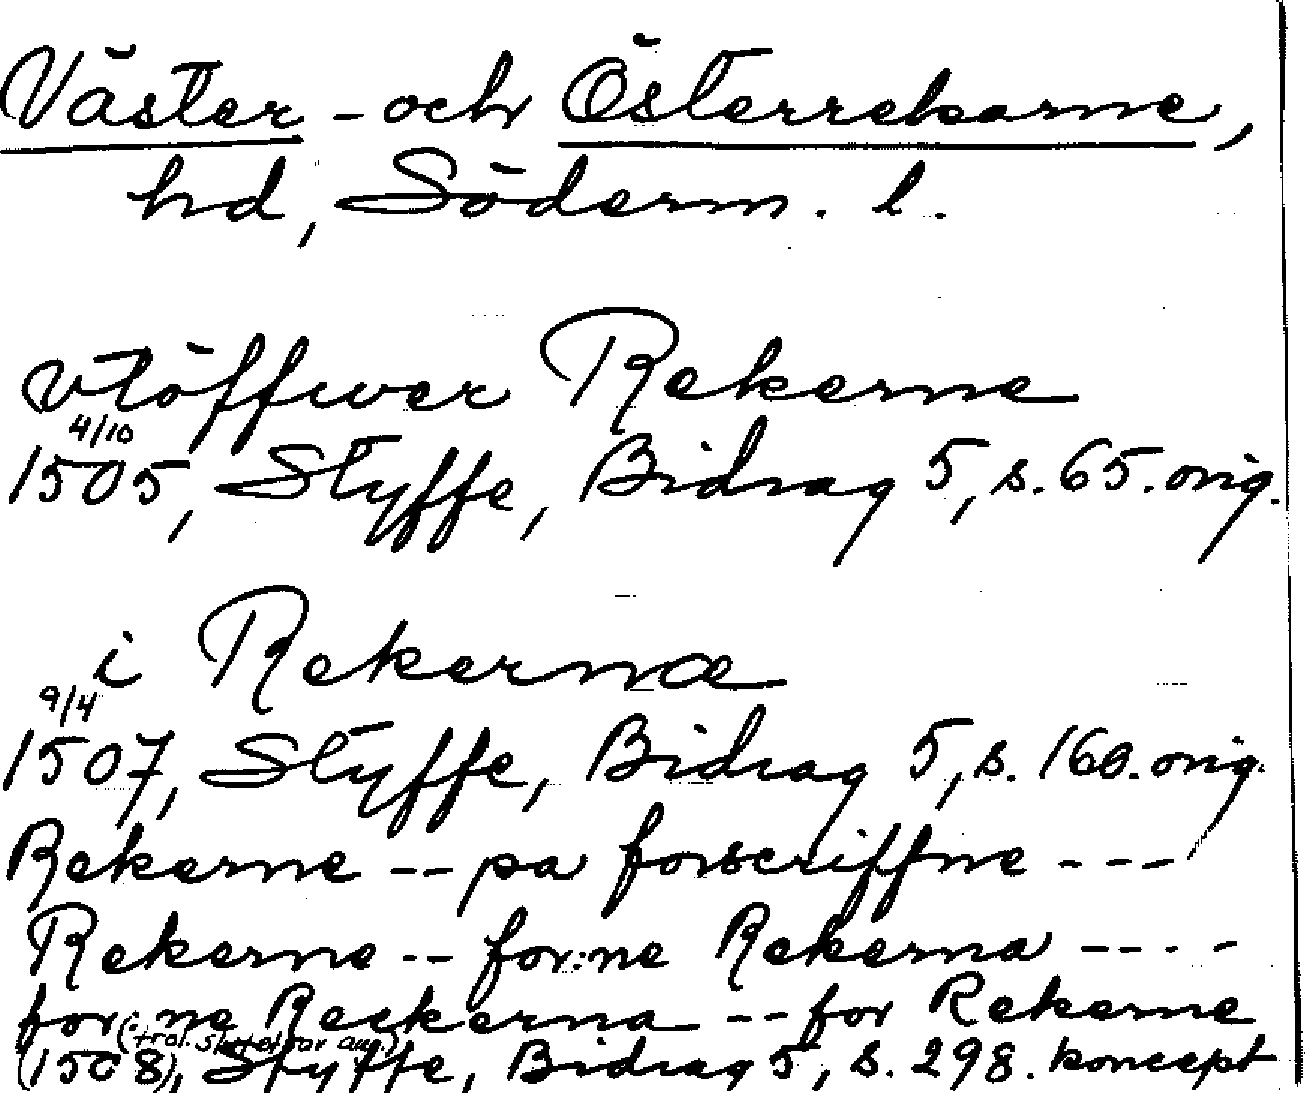 Väster- och Österrekarne,
hd, Söderm. l.
vtöffwer Rekerne
4/10
1505, Styffe, Bidrag 5, s. 65. orig.
i Rekernæ
9/4
1507, Styffe, Bidrag 5, s. 160. orig.
Rekerne -- pa forscriffne ---
Rekerne -- for:ne Rekerna ----
for:ne Reckerna -- for Rekerne
(trol. slutet av aug.)
(1508), Styffe, Bidrag 5, s. 298. koncept